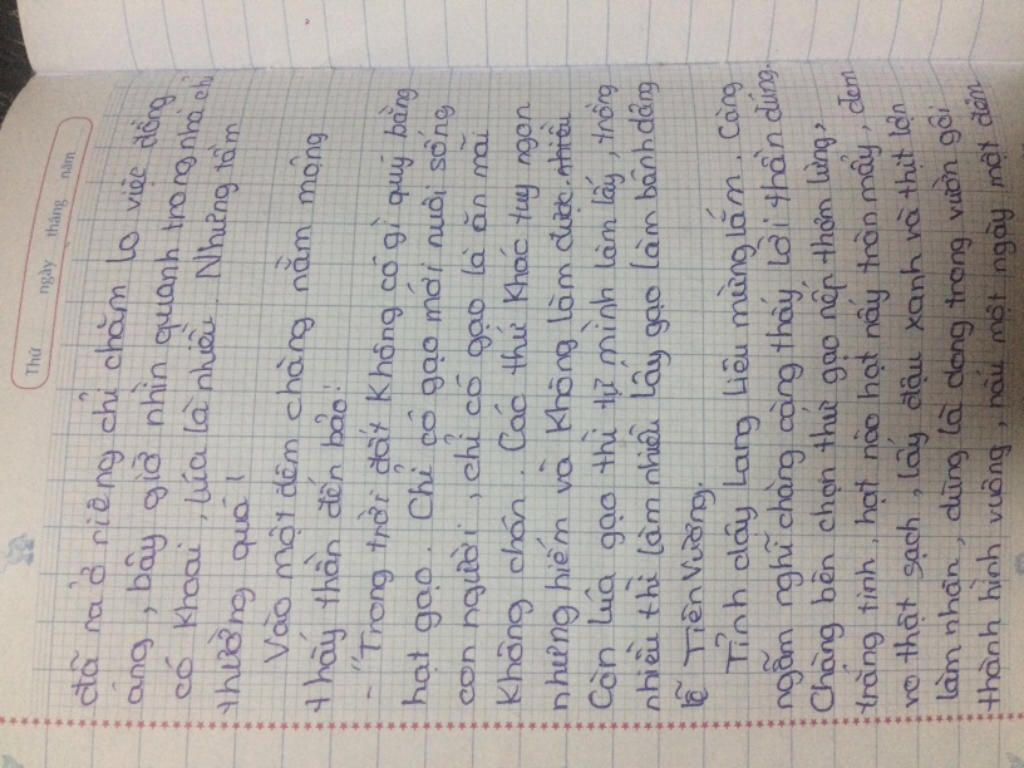 Thứ ngày tháng năm
đã ra ở riêng chỉ chăm lo việc đồng
áng, bây giờ nhìn quanh trong nhà chỉ
có khoai, lúa là nhiều. Nhưng tầm
thường quá!
Vào một đêm chàng nằm mộng
thấy thần đến bảo:
- "Trong trời đất không có gì quý bằng
hạt gạo. Chỉ có gạo mới nuôi sống
con người, chỉ có gạo là ăn mãi
không chán. Các thứ khác tuy ngon
nhưng hiếm và không làm được nhiều
Còn lúa gạo thì tự mình làm lấy, trồng
nhiều thì làm nhiều lấy gạo làm bánh dâng
lễ Tiên Vương.
Tỉnh dậy Lang Liêu mừng lắm. Càng
ngẫm nghĩ chàng càng thấy lời thần đúng.
Chàng bèn chọn thứ gạo nếp thơm lừng,
trắng tinh, hạt nào hạt nấy tròn mẩy, đem
vo thật sạch, lấy đậu xanh và thịt lợn
làm nhân, dùng lá dong trong vườn gói
thành hình vuông, nấu một ngày một đêm